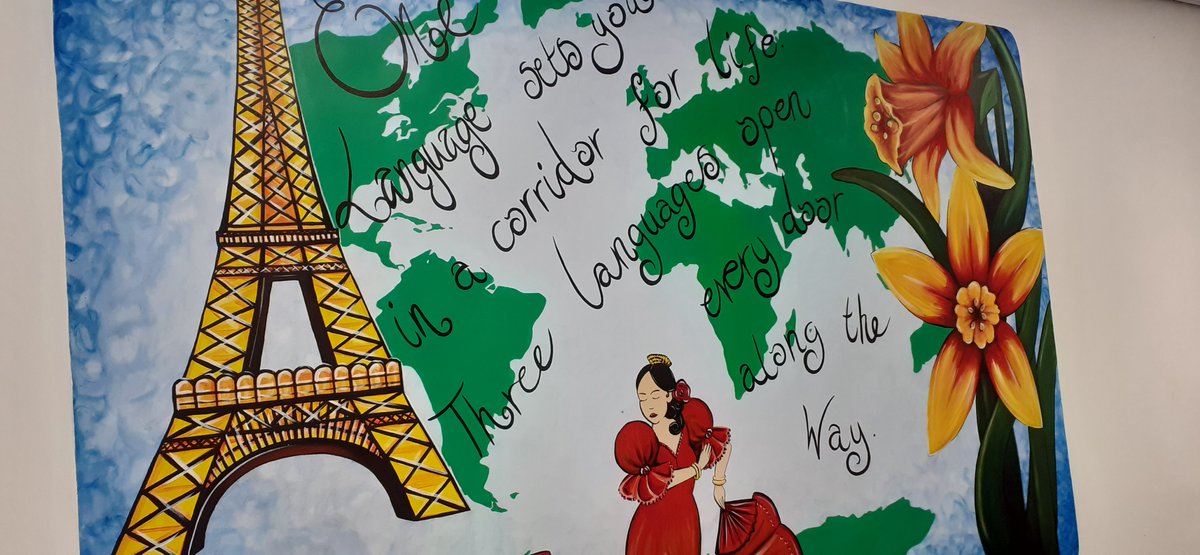 One
Language sets you
in a corridor for life.
Three Languages open
every door
along the
Way.